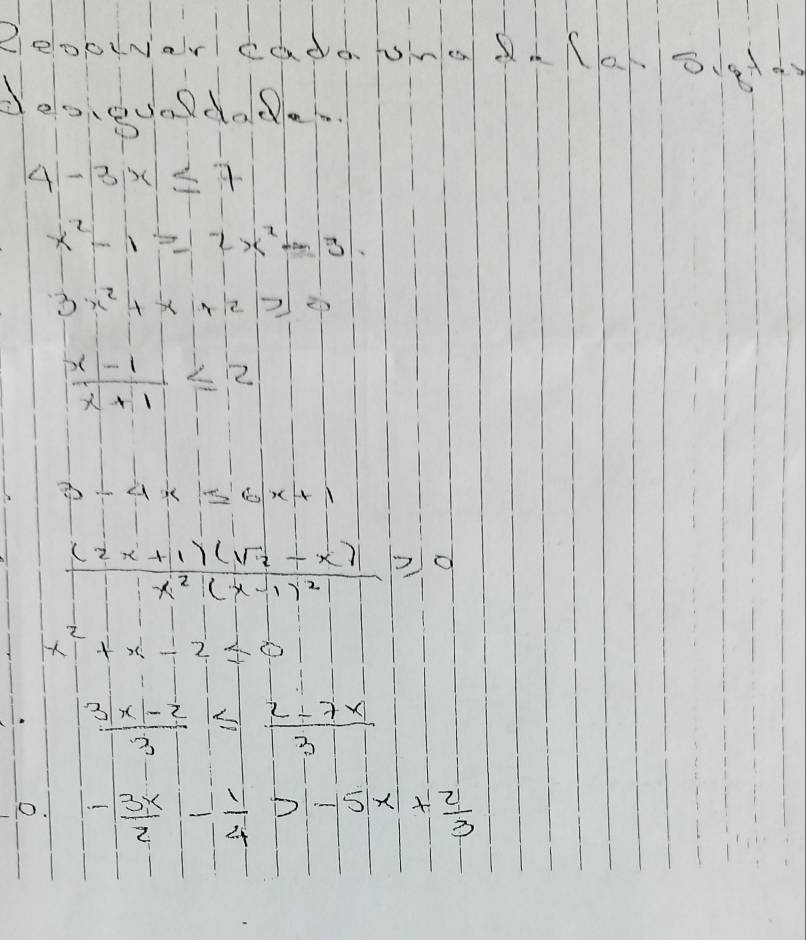 Resolver cada una de las sigtes
desigualdades.
4 - 3x ≤ 7
x² - 1 ≥ 2x² - 3.
3x² + x + 2 ≥ 0
(x - 1)/(x + 1) ≤ 2
3 - 4x ≤ 6x + 1
((2x + 1)(√2 - x))/(x²(x - 1)²) ≥ 0
x² + x - 2 ≤ 0
(3x - 2)/3 ≤ (2 - 7x)/3
0. -3x/2 - 1/4 > -5x + 2/3